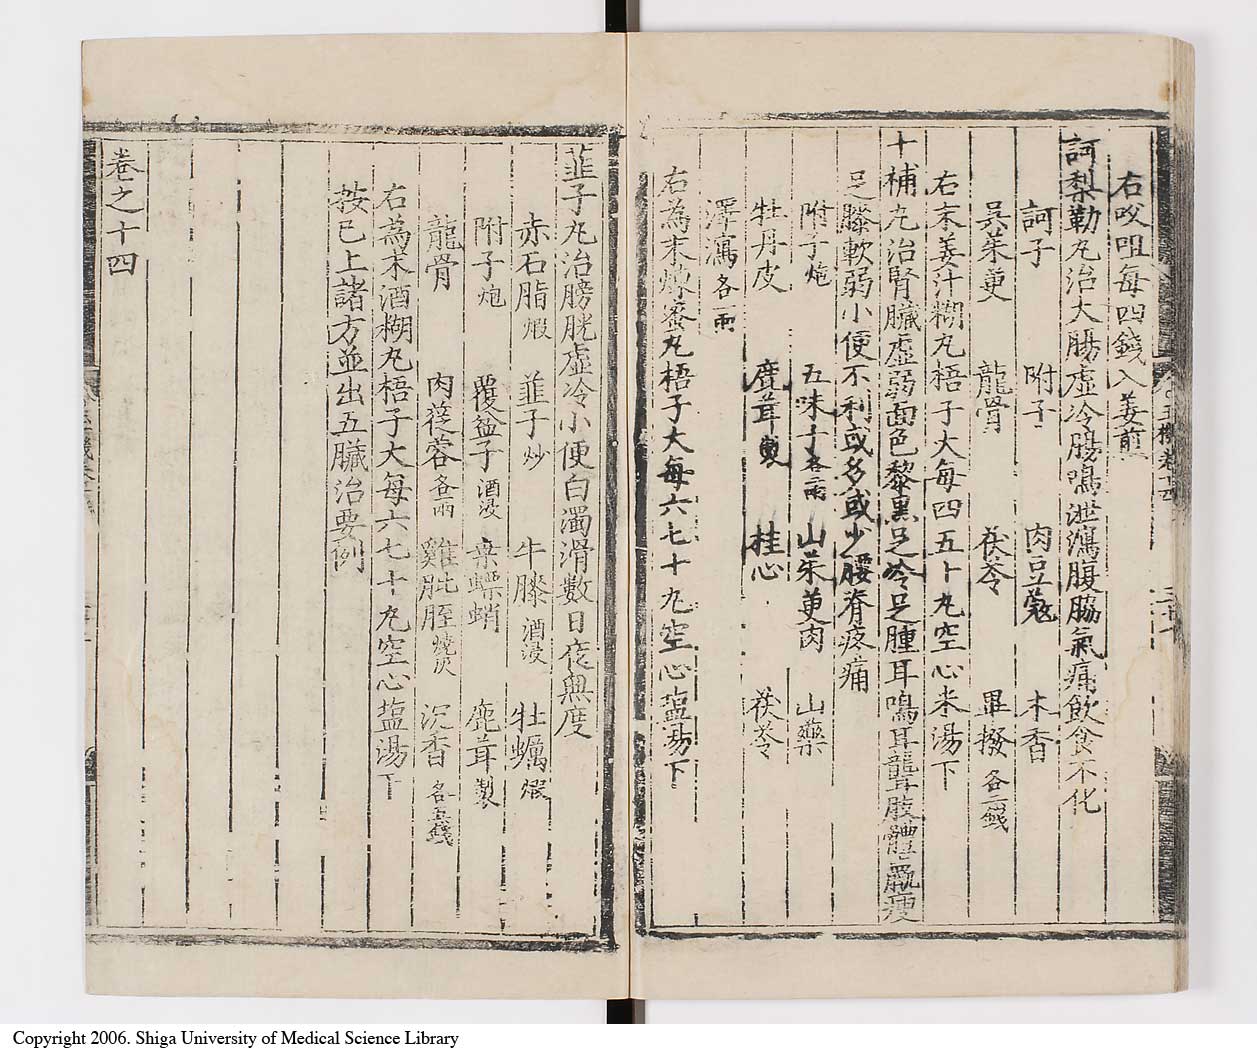 右㕮咀每四錢入姜煎
訶梨勒丸治大腸虛冷腸鳴泄瀉腹脇氣痛飲食不化
訶子 附子 肉豆蔻 木香
吳茱萸 龍骨 茯苓 蓽撥各二錢
右末姜汁糊丸梧子大每四五十丸空心米湯下
十補丸治腎臟虛弱面色黎黑足冷足腫耳鳴耳聾肢體羸瘦
足膝軟弱小便不利或多或少腰脊疼痛
附子炮 五味子各二兩 山茱萸肉 山藥
牡丹皮 鹿茸製 桂心 茯苓
澤瀉各一兩
右為末煉蜜丸梧子大每六七十丸空心塩湯下
韮子丸治膀胱虛冷小便白濁滑數日夜無度
赤石脂煅 韮子炒 牛膝酒浸 牡蠣煅
附子炮 覆盆子酒浸 桑螵蛸 鹿茸製
龍骨 肉蓯蓉各一兩 雞肶胵燒灰 沉香各五錢
右為末酒糊丸梧子大每六七十丸空心塩湯下
按已上諸方並出五臟治要例
卷之十四
Copyright 2006. Shiga University of Medical Science Library